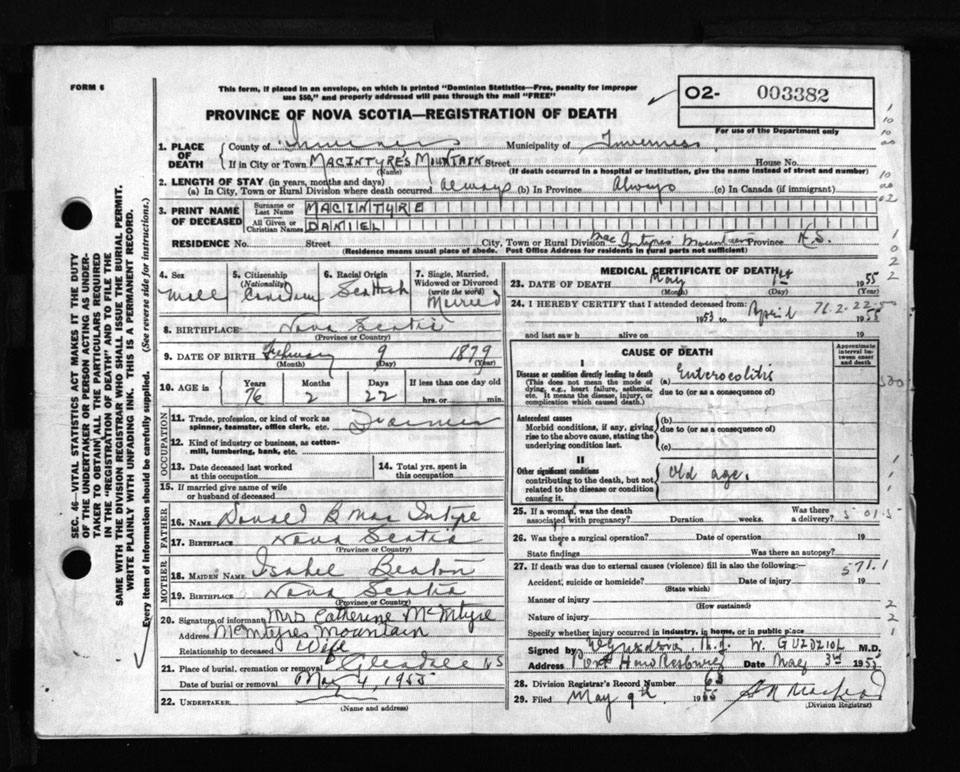 FORM 6
This form, if placed in an envelope, on which is printed "Dominion Statistics—Free, penalty for improper
use $50," and properly addressed will pass through the mail "FREE"
02- 003382
For use of the Department only
PROVINCE OF NOVA SCOTIA—REGISTRATION OF DEATH
1. PLACE OF DEATH
County of Inverness Municipality of Inverness
If in City or Town MACINTYRES MOUNTAIN Street House No.
(Name) (If death occurred in a hospital or institution, give the name instead of street and number)
2. LENGTH OF STAY (in years, months and days)
(a) In City, Town or Rural Division where death occurred always (b) In Province Always (c) In Canada (if immigrant)
3. PRINT NAME OF DECEASED
Surname or Last Name MACINTYRE
All Given or Christian Names DANIEL
RESIDENCE No. Street City, Town or Rural Division Mac Intyres Mountain Province N.S.
(Residence means usual place of abode. Post Office Address for residents in rural parts not sufficient)
4. Sex Male
5. Citizenship (Nationality) Canadian
6. Racial Origin Scottish
7. Single, Married, Widowed or Divorced (write the word) Married
8. BIRTHPLACE Nova Scotia
(Province or Country)
9. DATE OF BIRTH February 9 1879
(Month) (Day) (Year)
10. AGE in Years 76 Months 2 Days 22 If less than one day old hrs. or min.
OCCUPATION
11. Trade, profession, or kind of work as spinner, teamster, office clerk, etc. Farmer
12. Kind of industry or business, as cotton-mill, lumbering, bank, etc.
13. Date deceased last worked at this occupation
14. Total yrs. spent in this occupation
15. If married give name of wife or husband of deceased
FATHER
16. NAME Donald B Mac Intyre
17. BIRTHPLACE Nova Scotia
(Province or Country)
MOTHER
18. MAIDEN NAME Isabel Beaton
19. BIRTHPLACE Nova Scotia
(Province or Country)
20. Signature of informant Mrs Catherine McIntyre
Address McIntyres Mountain
Relationship to deceased Wife
21. Place of burial, cremation or removal Glendale NS
Date of burial or removal May 4, 1955
22. UNDERTAKER
(Name and address)
MEDICAL CERTIFICATE OF DEATH
23. DATE OF DEATH May 1st 1955
(Month) (Day)
24. I HEREBY CERTIFY that I attended deceased from: 76-2-22-5
1953 to April 1955
and last saw h alive on 19
CAUSE OF DEATH
Approximate interval between onset and death
I
Disease or condition directly leading to death (a) Enterocolitis
(This does not mean the mode of dying, e.g., heart failure, asthenia, etc. It means the disease, injury, or complication which caused death.)
due to (or as a consequence of)
Antecedent causes
Morbid conditions, if any, giving rise to the above cause, stating the underlying condition last.
(b)
due to (or as a consequence of)
(c)
II
Other significant conditions contributing to the death, but not related to the disease or condition causing it.
Old age.
25. If a woman, was the death associated with pregnancy? Duration weeks. Was there a delivery?
26. Was there a surgical operation? Date of operation 19
State findings Was there an autopsy?
27. If death was due to external causes (violence) fill in also the following:—
571.1
Accident, suicide or homicide? Date of injury 19
(State which)
Manner of injury
(How sustained)
Nature of injury
Specify whether injury occurred in industry, in home, or in public place
Signed by W. GUZDZIOL M.D.
Address Port Hawkesbury Date May 3rd 1955
28. Division Registrar's Record Number
29. Filed May 9th, 1955
(Division Registrar)
SEC. 46—VITAL STATISTICS ACT MAKES IT THE DUTY
OF THE UNDERTAKER OR PERSON ACTING AS UNDER-
TAKER TO OBTAIN ALL THE PARTICULARS REQUIRED
IN THE "REGISTRATION OF DEATH" AND TO FILE THE
SAME WITH THE DIVISION REGISTRAR WHO SHALL ISSUE THE BURIAL PERMIT.
WRITE PLAINLY WITH UNFADING INK. THIS IS A PERMANENT RECORD.
Every item of information should be carefully supplied. (See reverse side for instructions.)